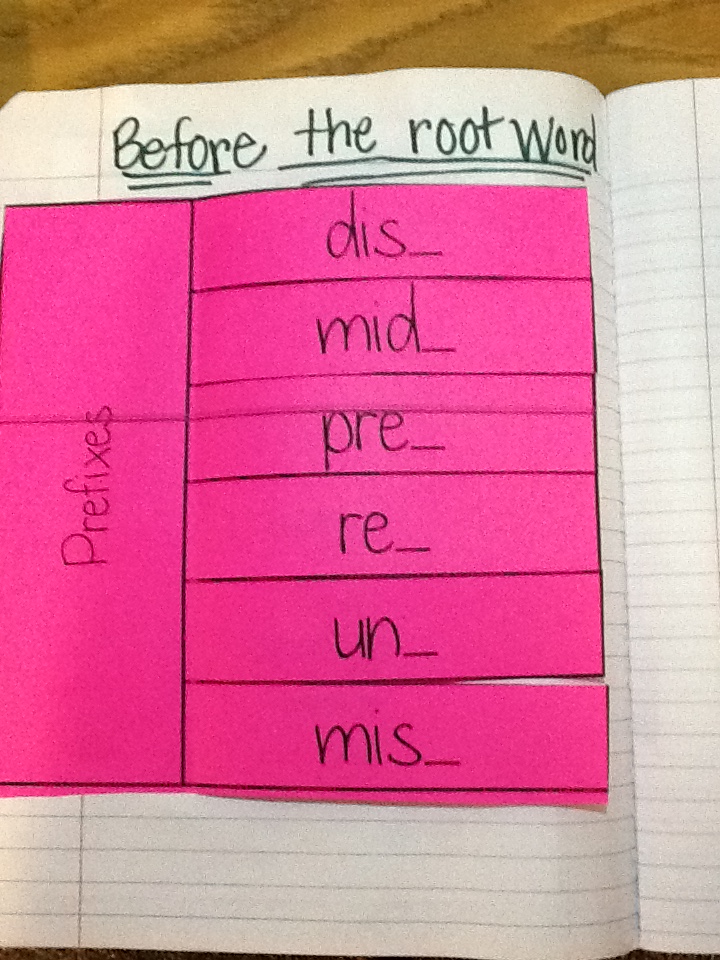 Before the root Word
Prefixes
dis_
mid_
pre_
re_
un_
mis_